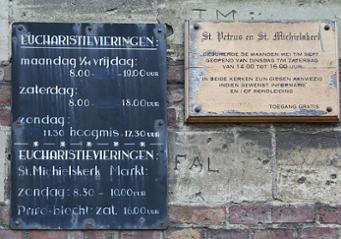 EUCHARISTIEVIERINGEN:
maandag t/m vrijdag:
8.00 - 19.00 UUR
zaterdag:
8.00 - 18.00 UUR
zondag:
11.30 hoogmis. 17.30 UUR
EUCHARISTIEVIERINGEN:
St. Michielskerk Markt:
zondag: 8.30 - 10.00 UUR
zat. 16.00 UUR
St. Petrus en St. Michielskerk
GEDURENDE DE MAANDEN MEI T/M SEPT.
GEOPEND VAN DINSDAG T/M ZATERDAG
VAN 14.00 TOT 16.00 UUR.
IN BEIDE KERKEN ZIJN GIDSEN AANWEZIG
INDIEN GEWENST INFORMATIE
EN / OF RONDLEIDING
TOEGANG GRATIS
FAL